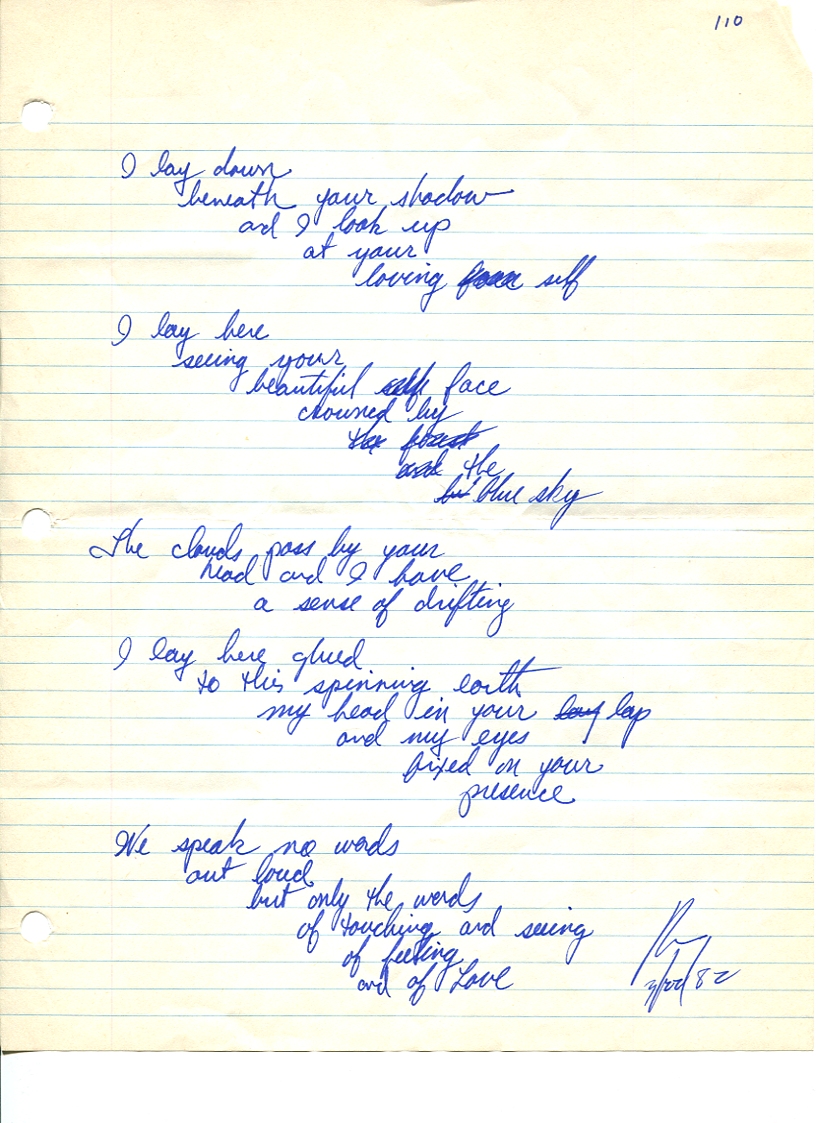 110
I lay down
beneath your shadow
and I look up
at your
loving self
I lay here
seeing your
beautiful self face
crowned by
the forest
and the
blue sky
The clouds pass by your
head and I have
a sense of drifting
I lay here glued
to this spinning earth
my head in your lap
and my eyes
fixed on your
presence
We speak no words
out loud
but only the words
of touching and seeing
of feeling
and of Love